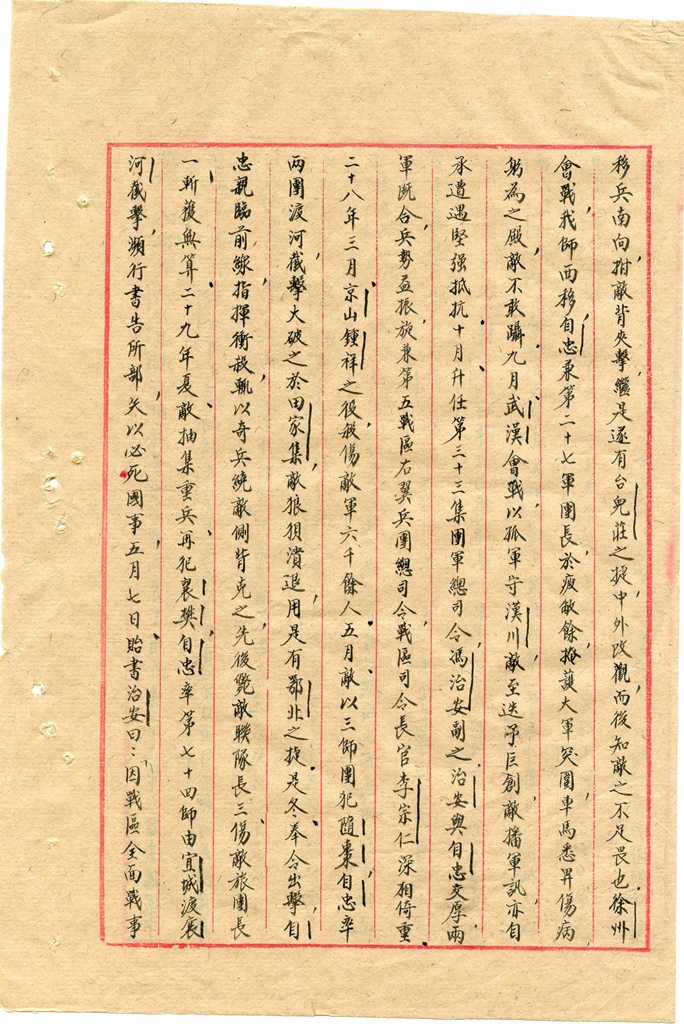 移兵南向，拊敵背夾擊，繼是遂有台兒莊之捷，中外改觀，而後知敵之不足畏也。徐州
會戰，我師西移，自忠兼第二十七軍團長，於疲敝餘，掩護大軍突圍，車馬悉畀傷病，
躬為之殿，敵不敢躡。九月武漢會戰，以孤軍守漢川，敵至迭予巨創，敵播軍訊，亦自
承遭遇堅强抵抗。十月升任第三十三集團軍總司令，馮治安副之，治安與自忠交厚，兩
軍既合，兵勢益振，旋兼第五戰區右翼兵團總司令，戰區司令長官李宗仁深相倚重。
二十八年三月京山鍾祥之役，殺傷敵軍六千餘人。五月敵以三師團犯隨棗，自忠率
兩團渡河截擊，大破之於田家集，敵狼狽潰退，用是有鄂北之捷。是冬，奉令出擊，自
忠親臨前線，指揮衝殺，輒以奇兵繞敵側背克之，先後斃敵聯隊長三，傷敵旅團長
一，斬獲無算。二十九年夏，敵抽集重兵，再犯襄樊，自忠率第七十四師由宜城渡襄
河截擊，瀕行書告所部，矢以必死國事，五月七日貽書治安曰：因戰區全面戰事